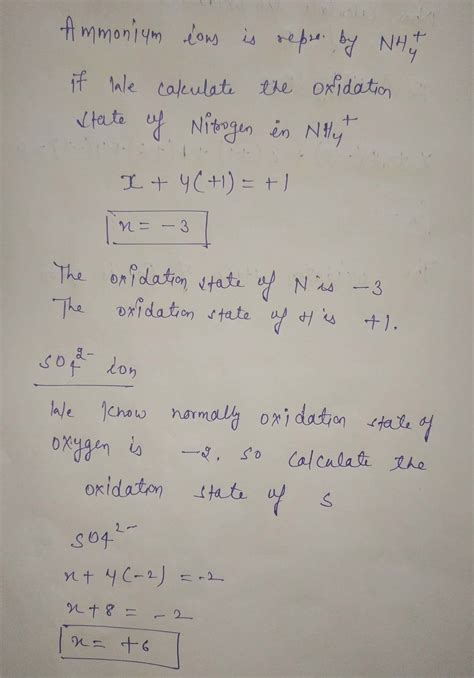 Ammonium ions is repre. by NH₄⁺
if We calculate the oxidation
state of Nitrogen in NH₄⁺
x + 4(+1) = +1
x = -3
The oxidation state of N is -3
The oxidation state of H is +1.
SO₄²⁻ ion
We know normally oxidation state of
oxygen is -2. so calculate the
oxidation state of S
SO₄²⁻
x + 4(-2) = -2
x + 8 = -2
x = +6